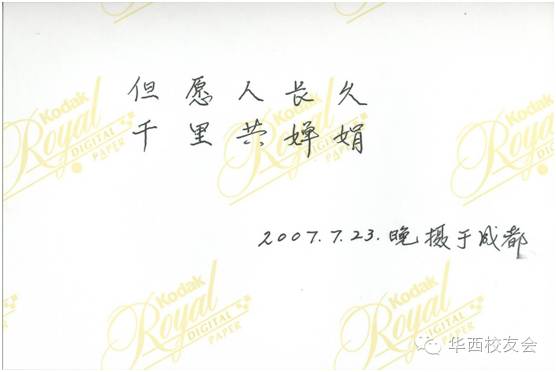 Kodak
Royal
DIGITAL
PAPER
Kodak
Royal
DIGITAL
PAPER
Kodak
Royal
DIGITAL
PAPER
但愿人长久
千里共婵娟
2007.7.23.晚摄于成都
Kodak
Royal
DIGITAL
PAPER
Kodak
Royal
DIGITAL
PAPER
华西校友会